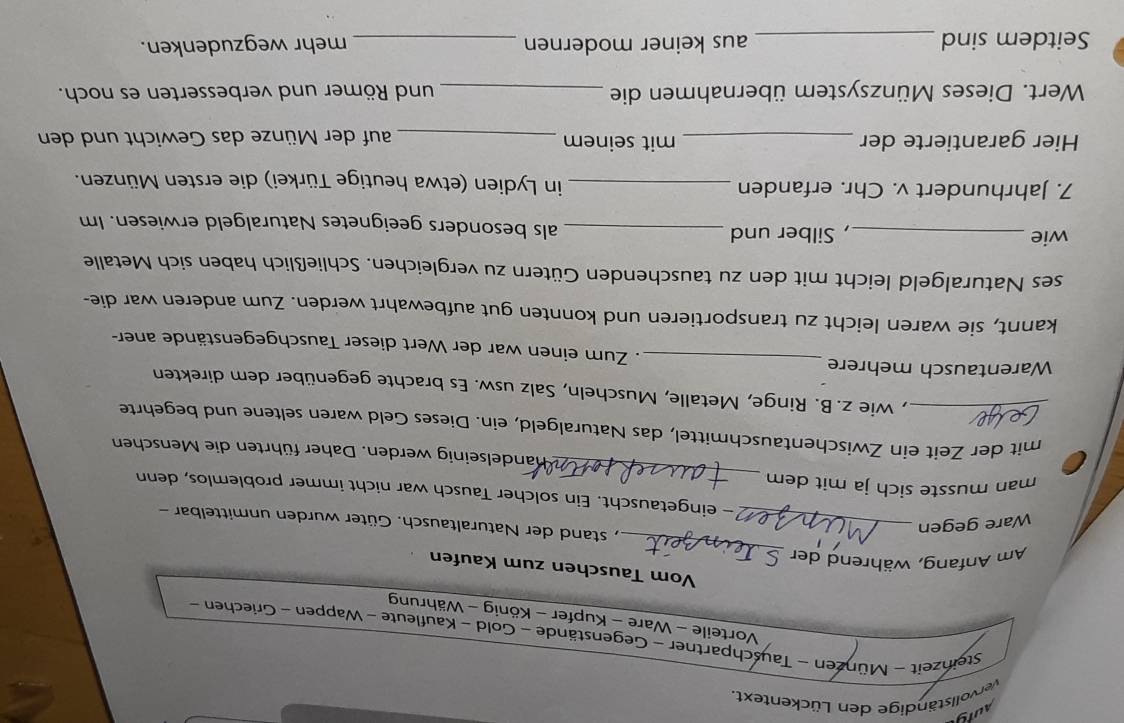 Aufg
vervollständige den Lückentext.
Steinzeit – Münzen – Tauschpartner – Gegenstände – Gold – Kaufleute – Wappen – Griechen –
Vorteile – Ware – Kupfer – König – Währung
Vom Tauschen zum Kaufen
Am Anfang, während der Steinzeit, stand der Naturaltausch. Güter wurden unmittelbar –
Ware gegen Münzen – eingetauscht. Ein solcher Tausch war nicht immer problemlos, denn
man musste sich ja mit dem tauschpartner handelseinig werden. Daher führten die Menschen
mit der Zeit ein Zwischentauschmittel, das Naturalgeld, ein. Dieses Geld waren seltene und begehrte
, wie z. B. Ringe, Metalle, Muscheln, Salz usw. Es brachte gegenüber dem direkten
Warentausch mehrere ____. Zum einen war der Wert dieser Tauschgegenstände aner-
kannt, sie waren leicht zu transportieren und konnten gut aufbewahrt werden. Zum anderen war die-
ses Naturalgeld leicht mit den zu tauschenden Gütern zu vergleichen. Schließlich haben sich Metalle
wie ____, Silber und ____ als besonders geeignetes Naturalgeld erwiesen. Im
7. Jahrhundert v. Chr. erfanden ____ in Lydien (etwa heutige Türkei) die ersten Münzen.
Hier garantierte der ____ mit seinem ____ auf der Münze das Gewicht und den
Wert. Dieses Münzsystem übernahmen die ____ und Römer und verbesserten es noch.
Seitdem sind ____ aus keiner modernen ____ mehr wegzudenken.